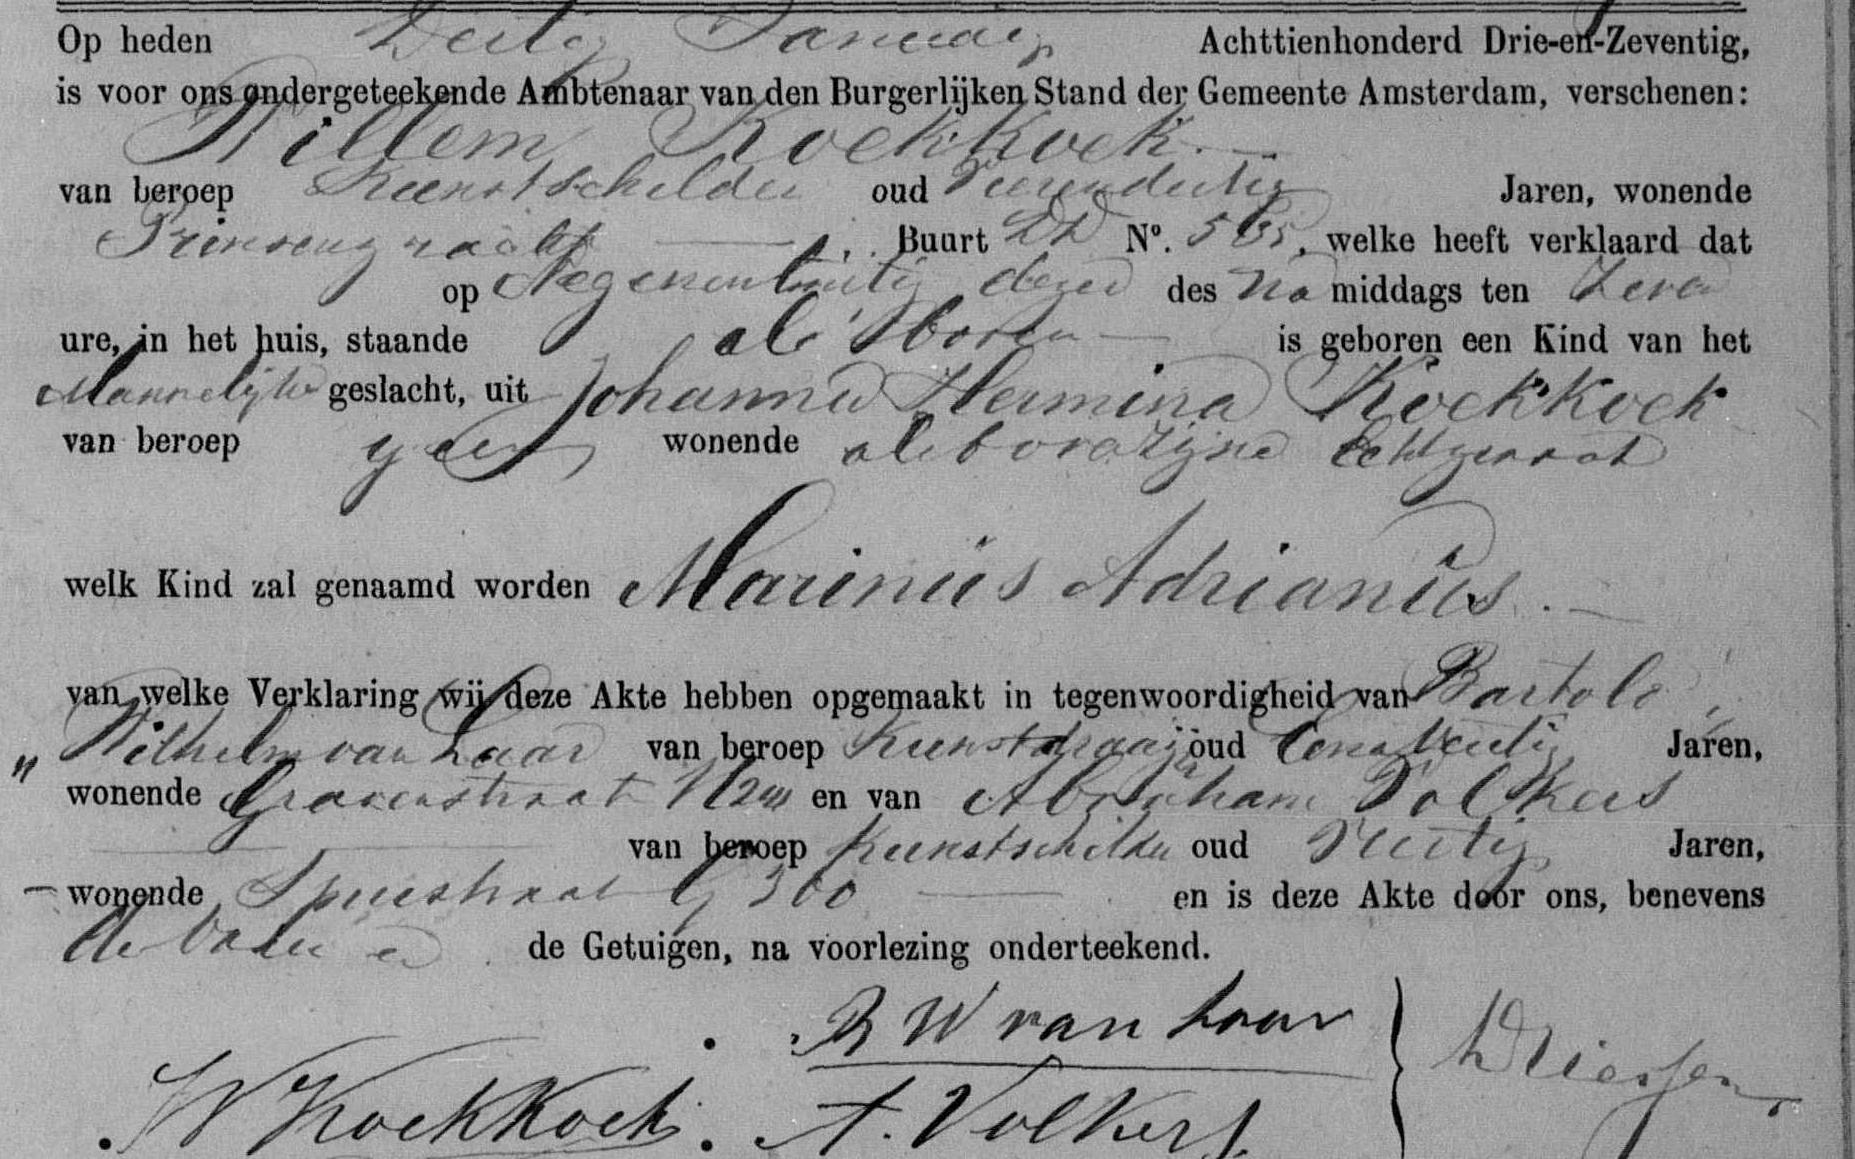 Op heden Dertig Januarij Achttienhonderd Drie-en-Zeventig,
is voor ons ondergeteekende Ambtenaar van den Burgerlijken Stand der Gemeente Amsterdam, verschenen:
Willem Koekkoek.
van beroep Kunstschilder oud Vierendertig Jaren, wonende
Prinsengracht Buurt No. welke heeft verklaard dat
op Negenentwintig dezer des na middags ten Zeven
ure, in het huis, staande als boven is geboren een Kind van het
Mannelijke geslacht, uit Johanna Hermina Koekkoek
van beroep geen wonende als boven zijne Echtgenoot
welk Kind zal genaamd worden Marinus Adrianus.
van welke Verklaring wij deze Akte hebben opgemaakt in tegenwoordigheid van Bartols
Wilhelm van Laar van beroep Kunstdraaijer oud Eenendertig Jaren,
wonende Gravenstraat en van Abraham Volkers
van beroep Kunstschilder oud Jaren,
wonende Spuistraat G 300 en is deze Akte door ons, benevens
de Vader en de Getuigen, na voorlezing onderteekend.
B W van Laar
W Koekkoek. A. Volkers
Driessen